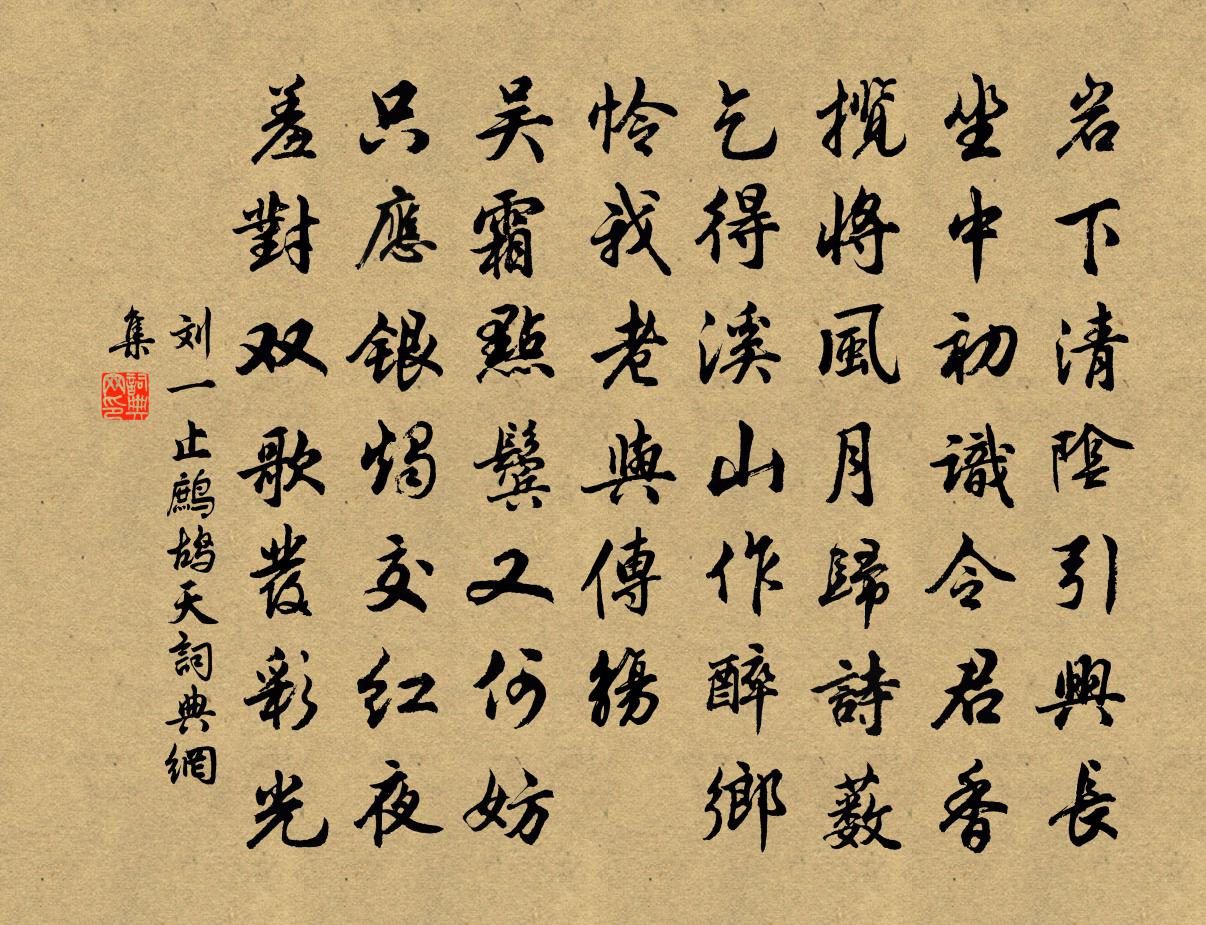 岩下清陰引興長
坐中初識令君香
攬將風月歸詩藪
乞得溪山作醉鄉
怜我老與傳觴
吳霜點鬢又何妨
只應銀燭交紅夜
羞對双歌發彩光
刘一止鷓鴣天詞典網
集
詞典